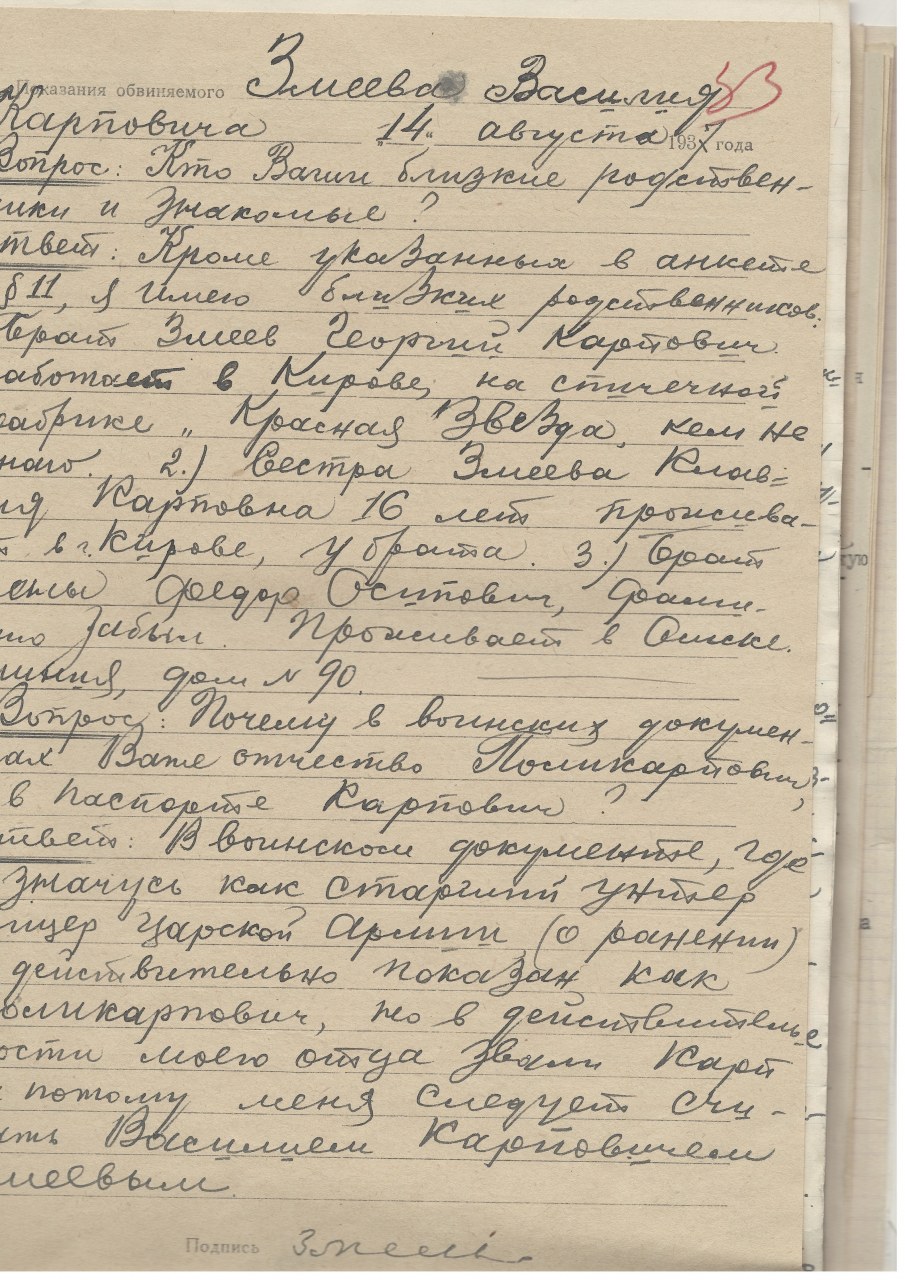 Показания обвиняемого Змеева Василия 33
Карповича "14" августа 1937 года
Вопрос: Кто Ваши близкие родствен-
ники и знакомые?
твет: Кроме указанных в анкете
§ 11, я имею близких родственников:
брат Змеев Георгий Карпович.
аботает в Кирове, на спичечной
фабрике „Красная Звезда, кем не
наю. 2.) Сестра Змеева Клав-
ия Карповна 16 лет прожива-
т в г. Кирове, у брата. 3.) брат
жены Федор Осипович, фами-
лию забыл. Проживает в Омске.
линия, дом № 90.
Вопрос: Почему в воинских докумен-
тах Ваше отчество Поликарпович,
в паспорте Карпович?
твет: В воинском документе, где
значусь как старший унтер
ицер Царской Армии (о ранении)
действительно показан как
оликарпович, но в действитель-
ости моего отца звали Карп
и потому меня следует счи-
ать Василием Карповичем
меевым.
Подпись Змеев